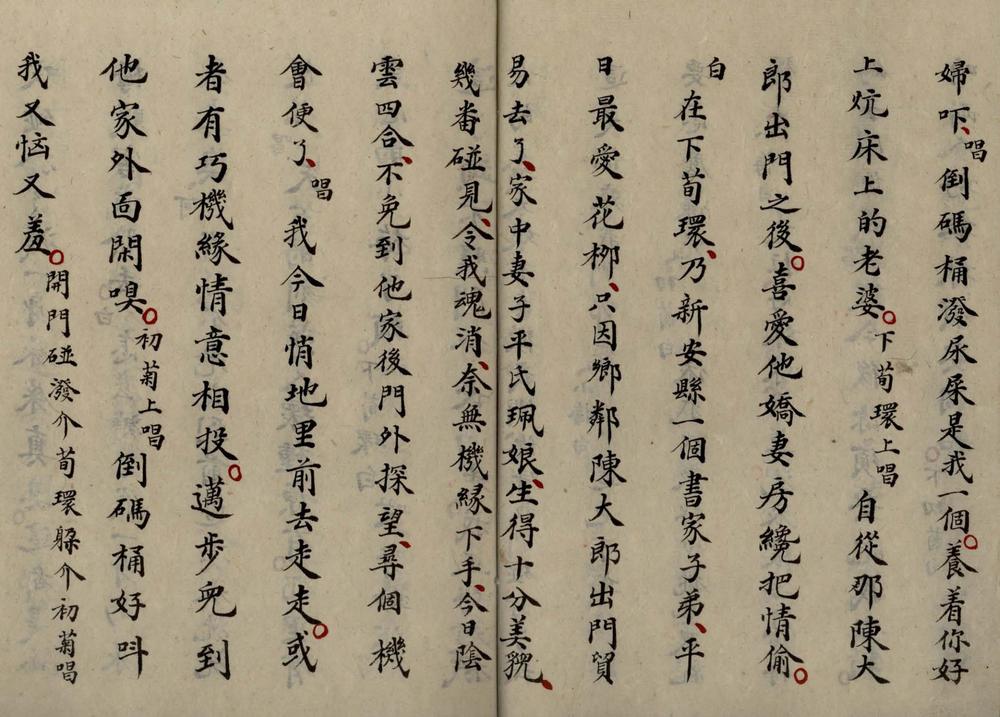 婦吓、唱倒碼桶潑尿屎是我一個。養着你好
上炕床上的老婆。下荀環上唱自從那陳大
郎出門之後。喜愛他嬌妻房纔把情偷。
白在下荀環、乃新安縣一個書家子弟、平
日最愛花栁、只因鄉鄰陳大郎出門貿
易去了、家中妻子平氏珮娘、生得十分美貌、
幾番碰見、令我魂消、奈無機緣下手、今日陰
雲四合、不免到他家後門外探望、尋個機
會便了、唱我今日悄地里前去走走。或
者有巧機緣情意相投。邁步兒到
他家外面閑嗅。初菊上唱倒碼桶好呌
我又恼又羞。開門碰潑介荀環躲介初菊唱